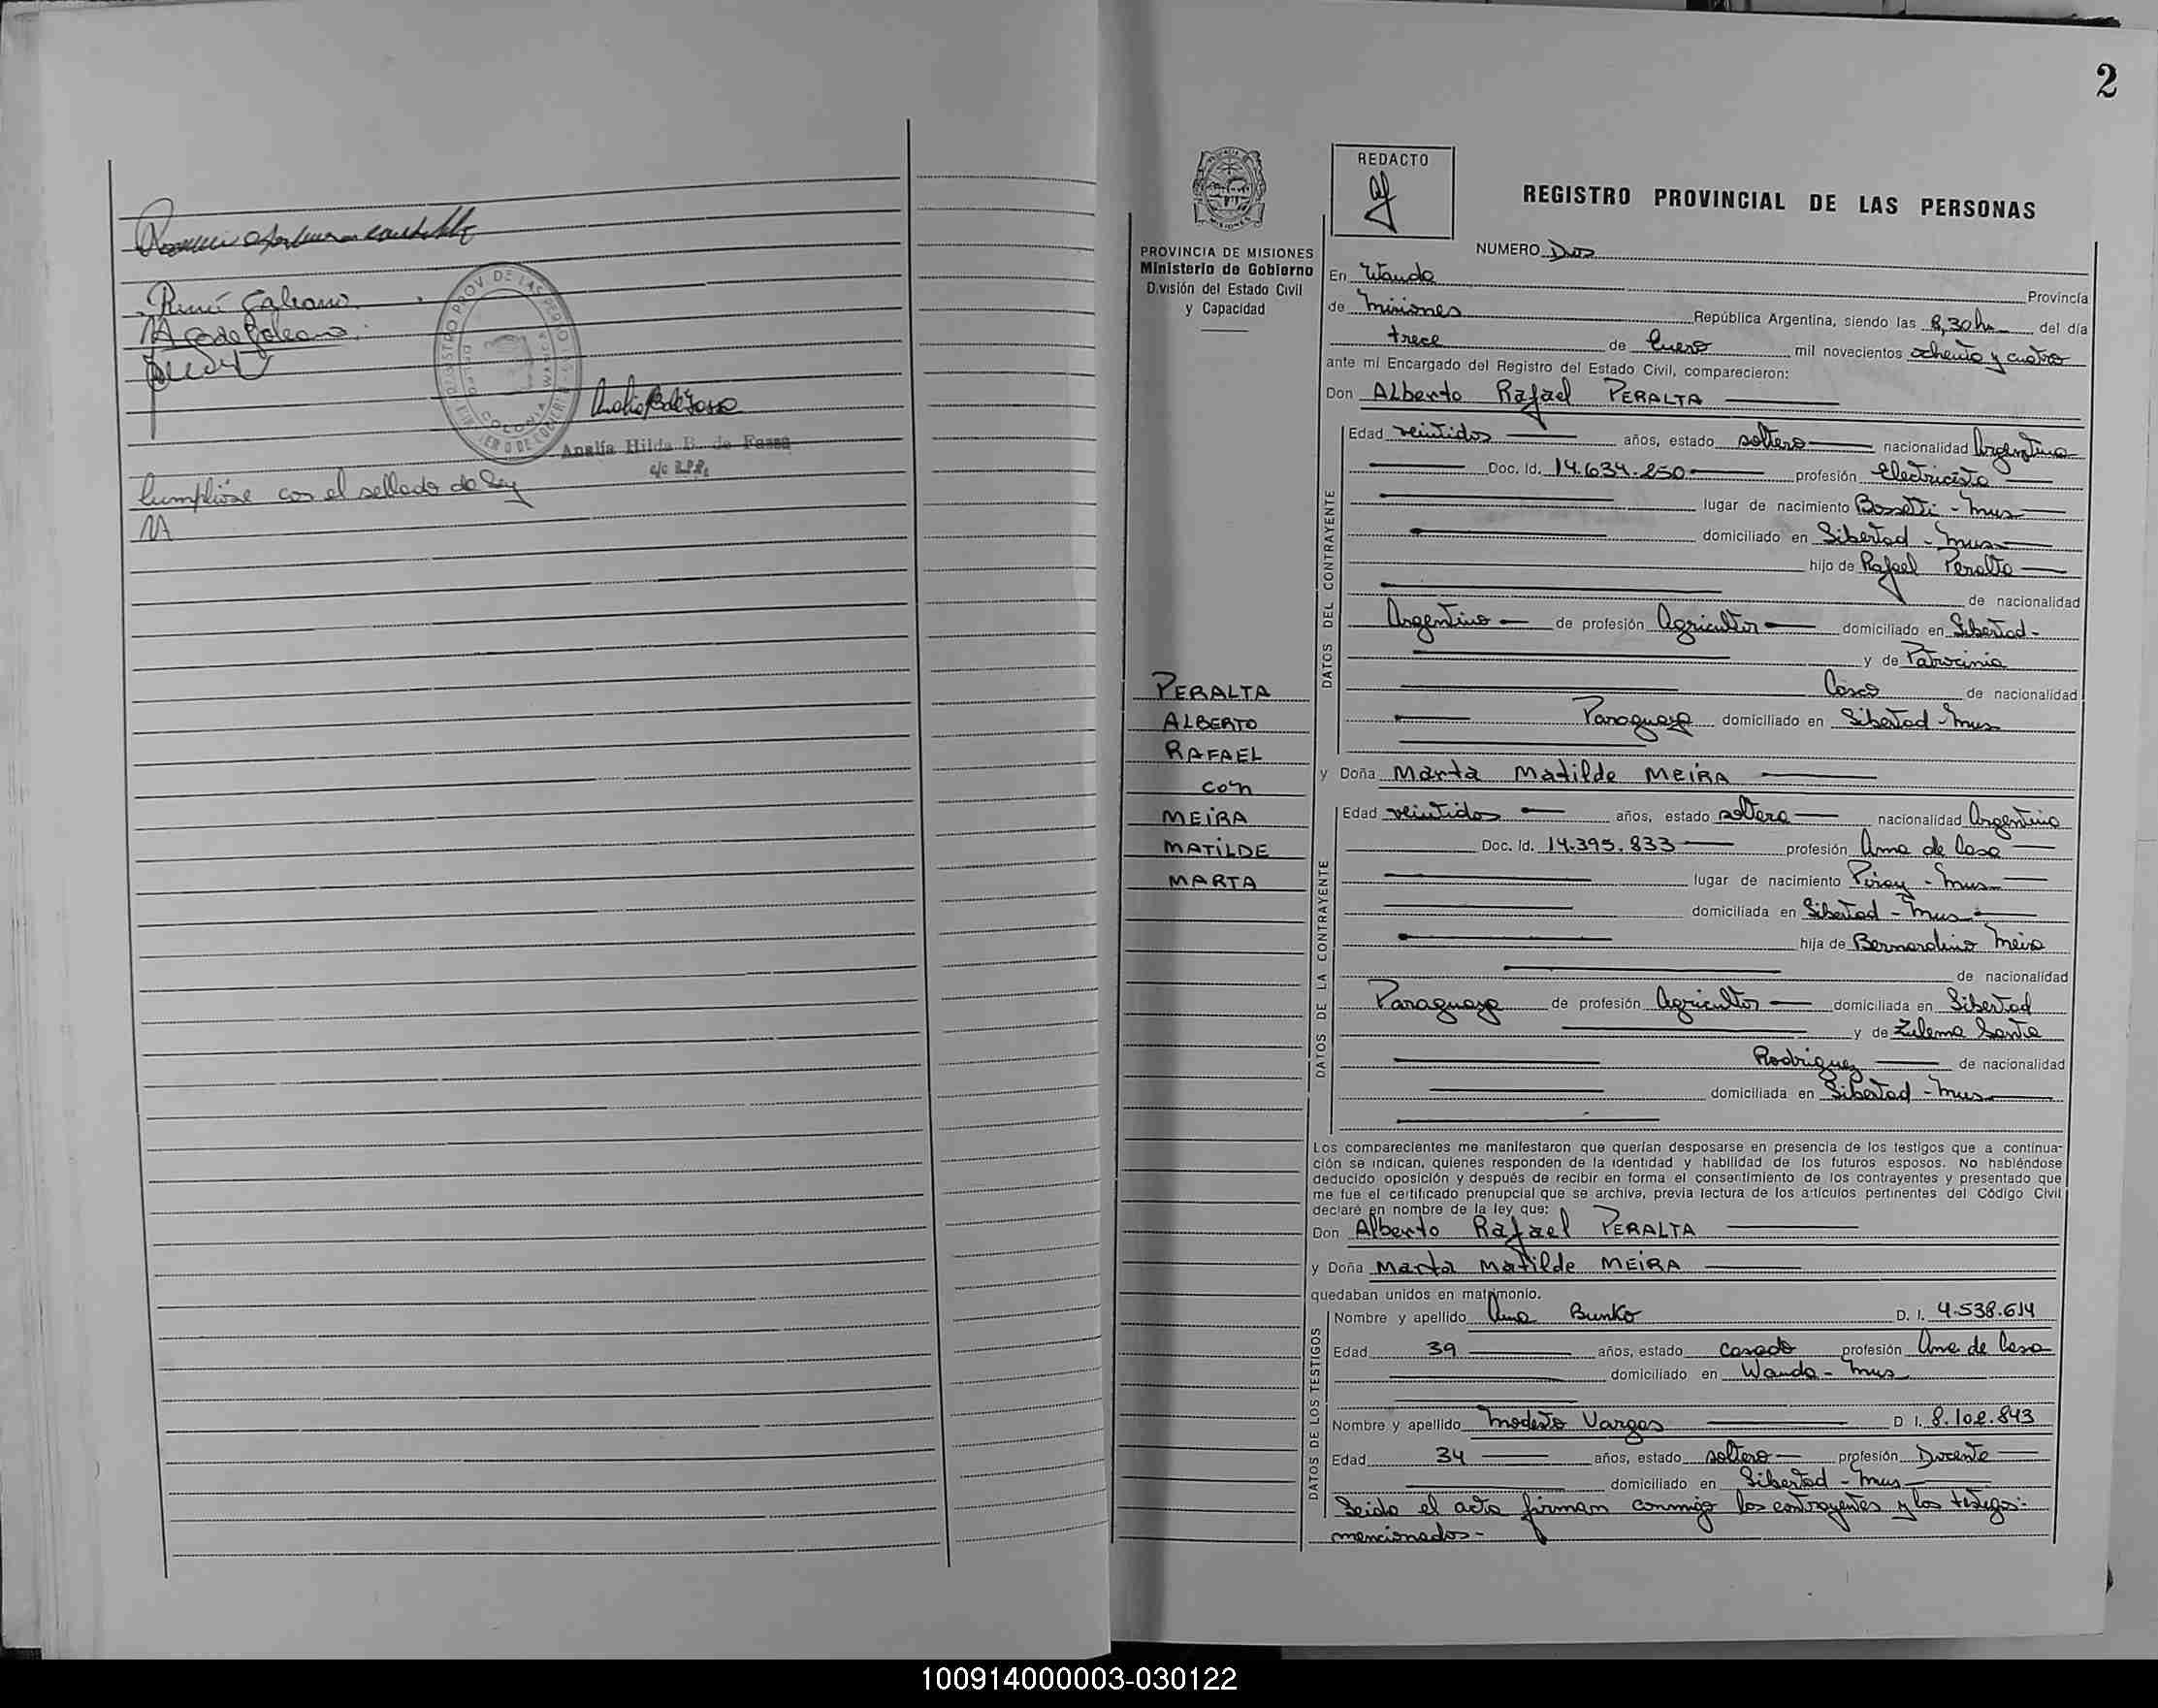 René Galeano
Analía Hilda B. de Fassa
Cumplióse con el sellado de ley
2
REDACTO
REGISTRO PROVINCIAL DE LAS PERSONAS
PROVINCIA DE MISIONES
Ministerio de Gobierno
División del Estado Civil
y Capacidad
NUMERO Dos
En Wanda Provincia
de Misiones República Argentina, siendo las 8,30 hs del día
trece de Enero mil novecientos ochenta y cuatro
ante mí Encargado del Registro del Estado Civil, comparecieron:
Don Alberto Rafael PERALTA
DATOS DEL CONTRAYENTE
Edad veintidos años, estado soltero nacionalidad Argentina
Doc. Id. 14.634.250 profesión Electricista
lugar de nacimiento Bossetti - Mnes
domiciliado en Libertad - Mnes
hijo de Rafael Peralta
de nacionalidad
Argentino de profesión Agricultor domiciliado en Libertad-
y de Patrocinia
de nacionalidad
Paraguaya domiciliado en Libertad-Mnes
PERALTA
ALBERTO
RAFAEL
con
MEIRA
MATILDE
MARTA
y Doña Marta Matilde MEIRA
DATOS DE LA CONTRAYENTE
Edad veintidos años, estado soltera nacionalidad Argentina
Doc. Id. 14.395.833 profesión Ama de Casa
lugar de nacimiento Piray - Mnes
domiciliada en Libertad - Mnes
hija de Bernardino Meira
de nacionalidad
Paraguaya de profesión Agricultor domiciliada en Libertad
y de Zulema Santa
Rodriguez de nacionalidad
domiciliada en Libertad - Mnes
Los comparecientes me manifestaron que querían desposarse en presencia de los testigos que a continua-
ción se indican, quienes responden de la identidad y habilidad de los futuros esposos. No habiéndose
deducido oposición y después de recibir en forma el consentimiento de los contrayentes y presentado que
me fue el certificado prenupcial que se archiva, previa lectura de los artículos pertinentes del Código Civil
declaré en nombre de la ley que:
Don Alberto Rafael PERALTA
y Doña Marta Matilde MEIRA
quedaban unidos en matrimonio.
DATOS DE LOS TESTIGOS
Nombre y apellido Ana Bunko D. I. 4.538.614
Edad 39 años, estado casada profesión Ama de Casa
domiciliado en Wanda - Mnes
Nombre y apellido Modesto Vargas D I. 8.102.843
Edad 34 años, estado soltero profesión Docente
domiciliado en Libertad - Mnes
Leida el acta firman conmigo los contrayentes y los testigos
mencionados-
100914000003-030122